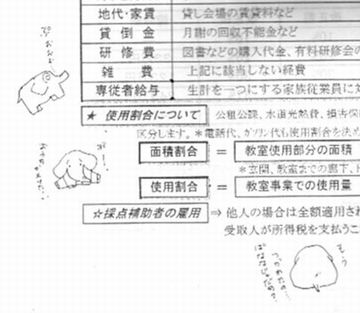 地代・家賃 貸し会場の賃貸料など
貸倒金 月謝の回収不能金など
研修費 図書などの購入代金、有料研修会の
雑費 上記に該当しない経費
専従者給与 生計を一つにする家族従業員に
★ 使用割合について 公租公課、水道光熱費、損害保
区分します。*電話代、ガソリン代も使用割合を決め
面積割合 = 教室使用部分の面積
*玄関、教室までの廊下、
使用割合 = 教室事業での使用量
☆採点補助者の雇用 ⇒ 他人の場合は全額適用され
受取人が所得税を支払うこ
ぷおぉぉ
が!
ぞう